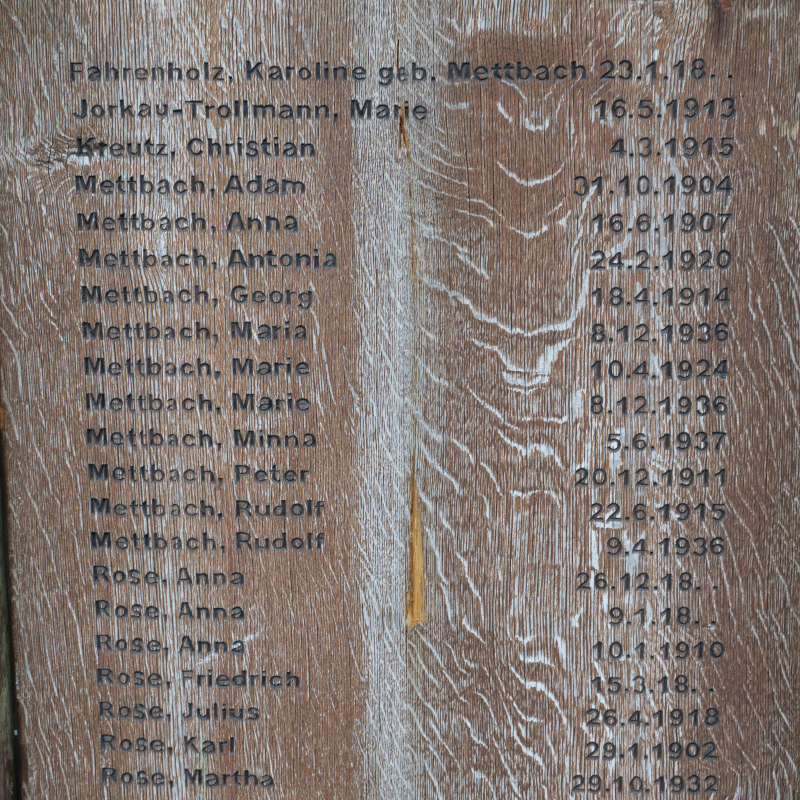 Fahrenholz, Karoline geb. Mettbach 23.1.18. .
Jorkau-Trollmann, Marie 16.5.1913
Kreutz, Christian 4.3.1915
Mettbach, Adam 31.10.1904
Mettbach, Anna 16.6.1907
Mettbach, Antonia 24.2.1920
Mettbach, Georg 18.4.1914
Mettbach, Maria 8.12.1936
Mettbach, Marie 10.4.1924
Mettbach, Marie 8.12.1936
Mettbach, Minna 5.6.1937
Mettbach, Peter 20.12.1911
Mettbach, Rudolf 22.6.1915
Mettbach, Rudolf 9.4.1936
Rose, Anna 26.12.18. .
Rose, Anna 9.1.18. .
Rose, Anna 10.1.1910
Rose, Friedrich 15.3.18. .
Rose, Julius 26.4.1918
Rose, Karl 29.1.1902
Rose, Martha 29.10.1932